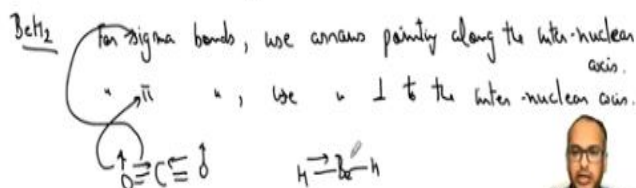 BeH2 For sigma bonds, use arrows pointing along the inter-nuclear
axis.
" π ", use " ⊥ to the inter-nuclear axis.
O=C=O H-Be-H